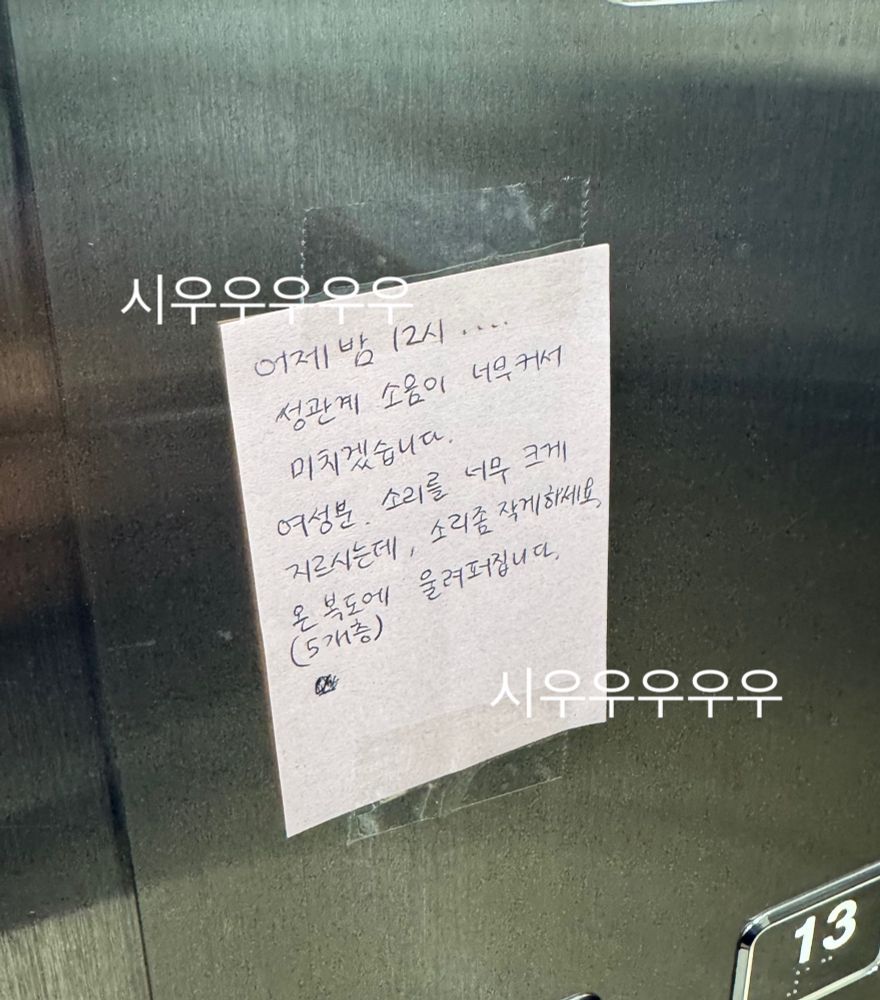 시우우우우우
어제 밤 12시 ....
성관계 소음이 너무커서
미치겠습니다.
여성분. 소리를 너무 크게
지르시는데, 소리좀 작게하세요,
온 복도에 울려퍼집니다.
(5개층)
시우우우우우
13